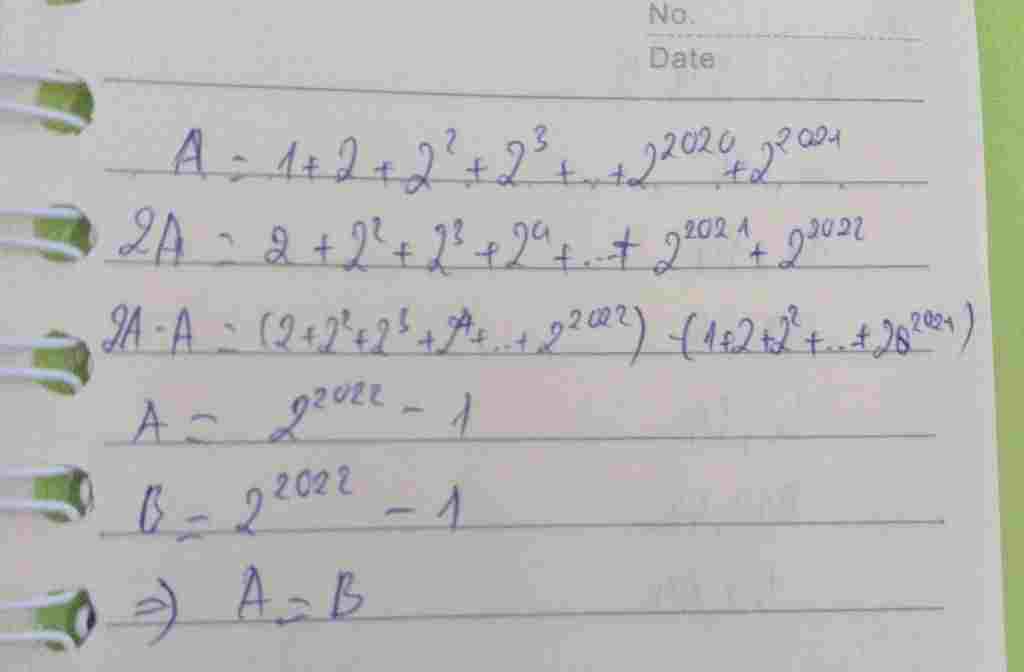 No.
Date
A = 1 + 2 + 2² + 2³ + .. + 2²⁰²⁰ + 2²⁰²¹
2A = 2 + 2² + 2³ + 2⁴ + ... + 2²⁰²¹ + 2²⁰²²
2A - A = (2 + 2² + 2³ + 2⁴ + .. + 2²⁰²²) - (1 + 2 + 2² + ... + 2²⁰²¹)
A = 2²⁰²² - 1
B = 2²⁰²² - 1
⇒ A = B